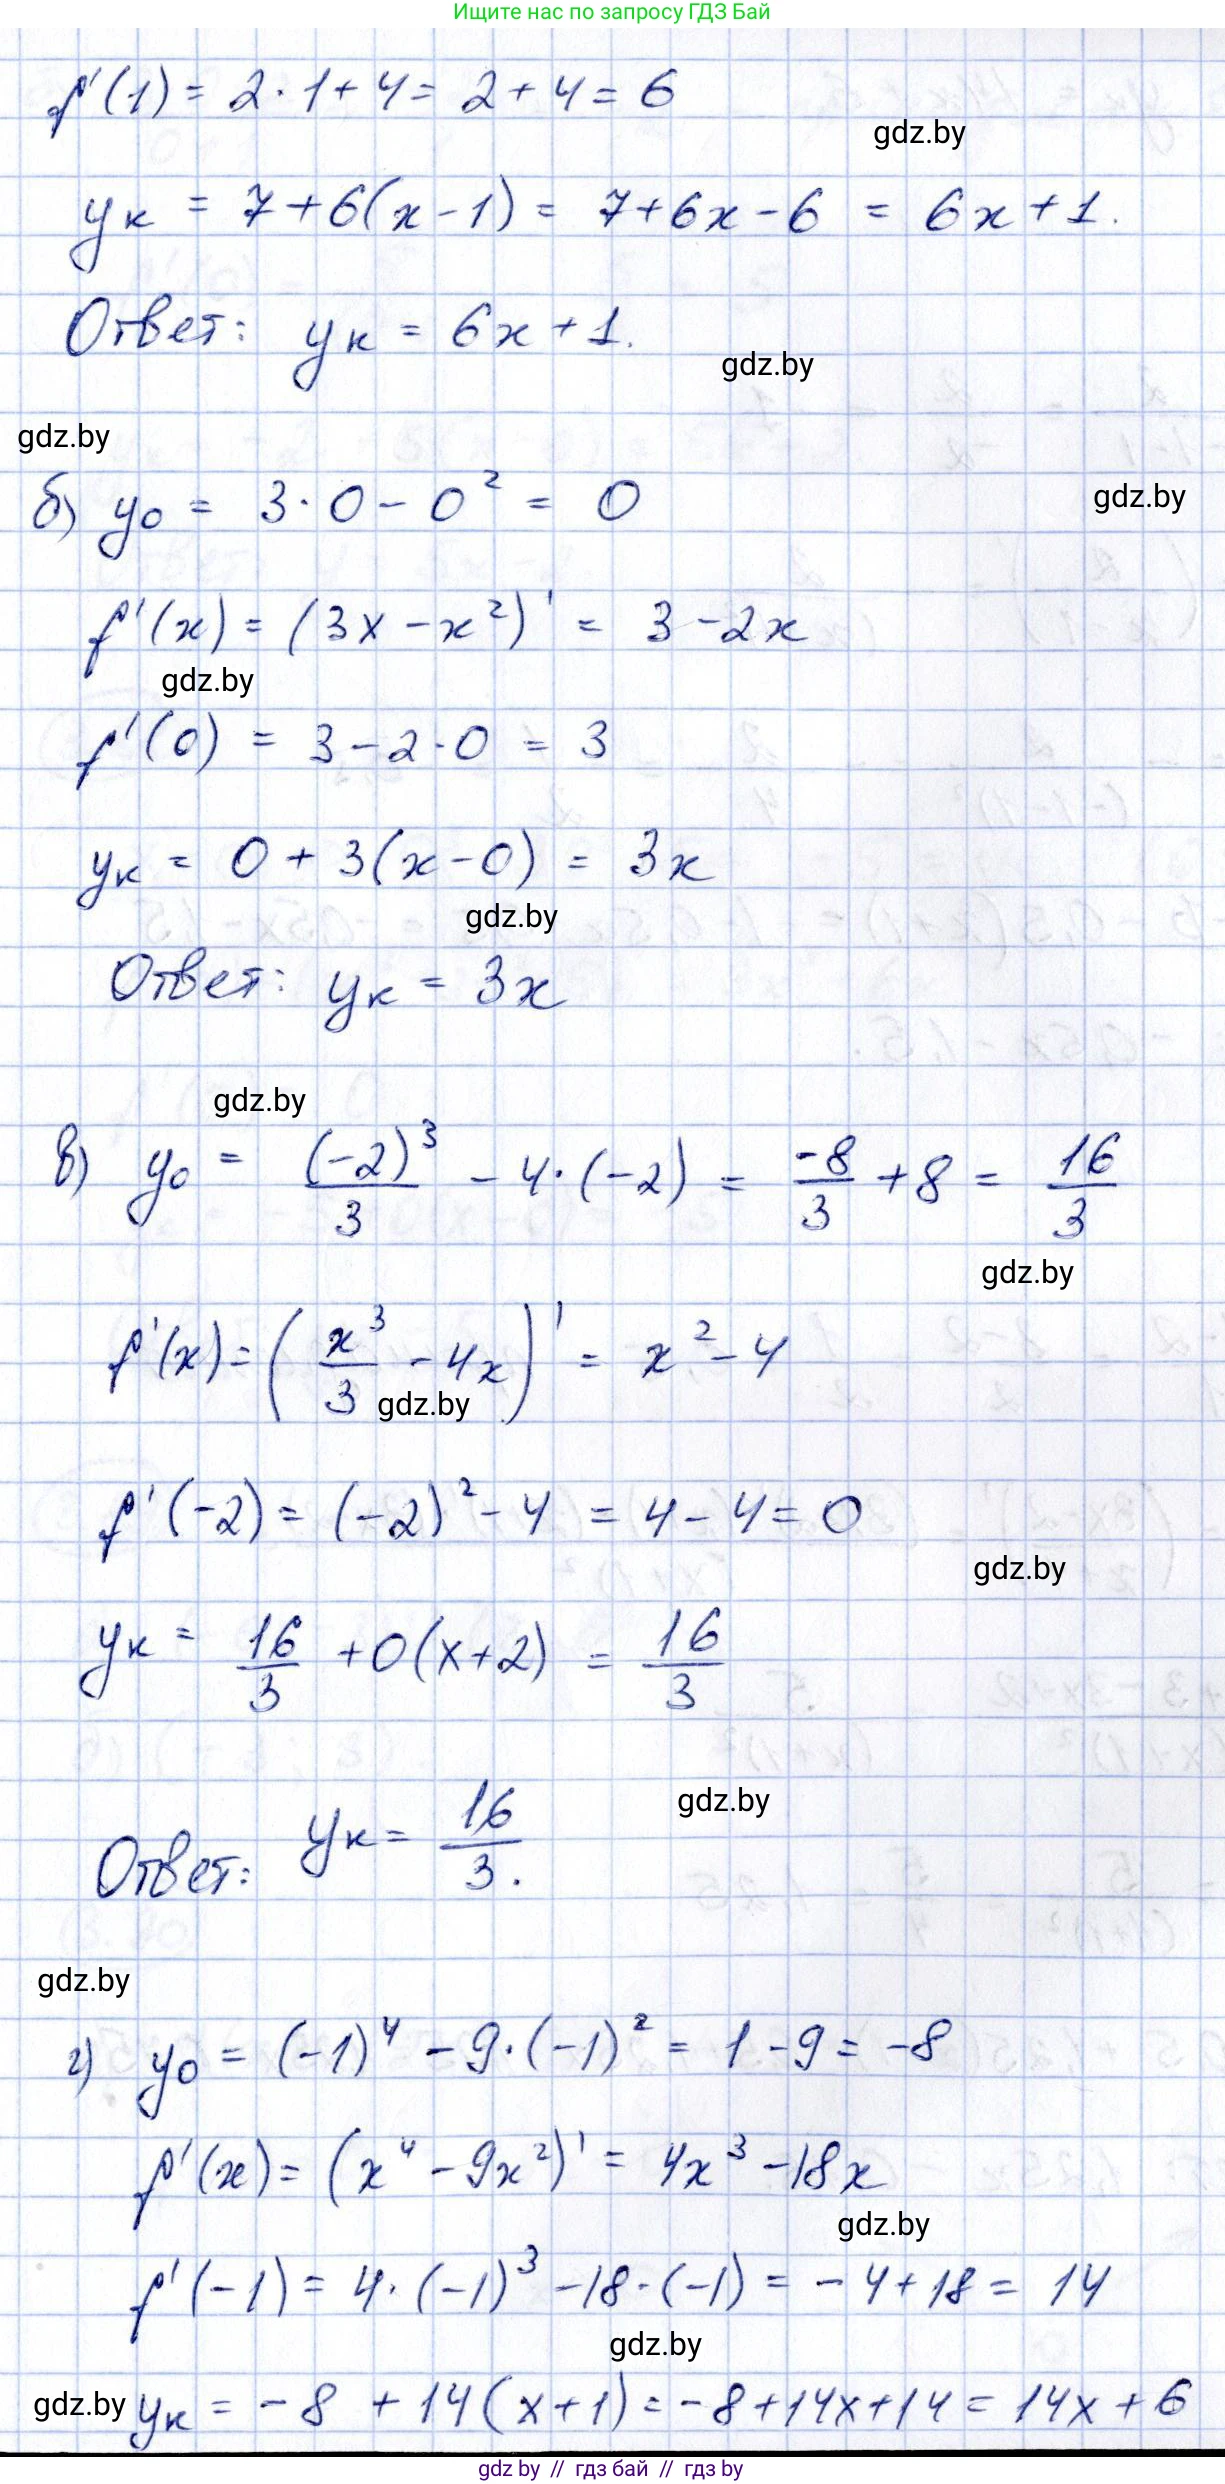 Ищите нас по запросу ГДЗ Бай
f'(1) = 2·1+4 = 2+4 = 6
gdz.by
yк = 7+6(x-1) = 7+6x-6 = 6x+1.
Ответ: yк = 6x+1.
gdz.by
gdz.by
б) y0 = 3·0-0² = 0
gdz.by
f'(x) = (3x-x²)' = 3-2x
gdz.by
f'(0) = 3-2·0 = 3
yк = 0+3(x-0) = 3x
gdz.by
Ответ: yк = 3x
gdz.by
в) y0 = (-2)³/3 - 4·(-2) = -8/3 + 8 = 16/3
gdz.by
f'(x) = (x³/3 - 4x)' = x²-4
gdz.by
f'(-2) = (-2)²-4 = 4-4 = 0
gdz.by
yк = 16/3 + 0(x+2) = 16/3
gdz.by
Ответ: yк = 16/3.
gdz.by
г) y0 = (-1)⁴ - 9·(-1)² = 1-9 = -8
f'(x) = (x⁴-9x²)' = 4x³-18x
gdz.by
f'(-1) = 4·(-1)³-18·(-1) = -4+18 = 14
gdz.by
gdz.by yк = -8 + 14(x+1) = -8+14x+14 = 14x+6
gdz.by // гдз бай // гдз by